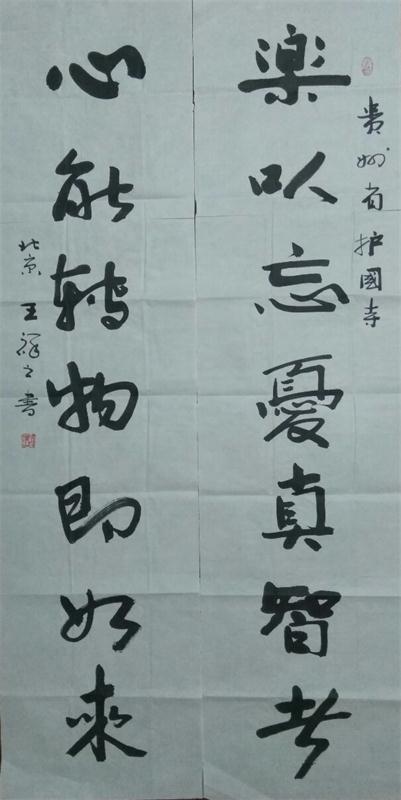 贵州省护國寺
楽以忘憂真智者
心能轉物即如來
北京 王祥之書